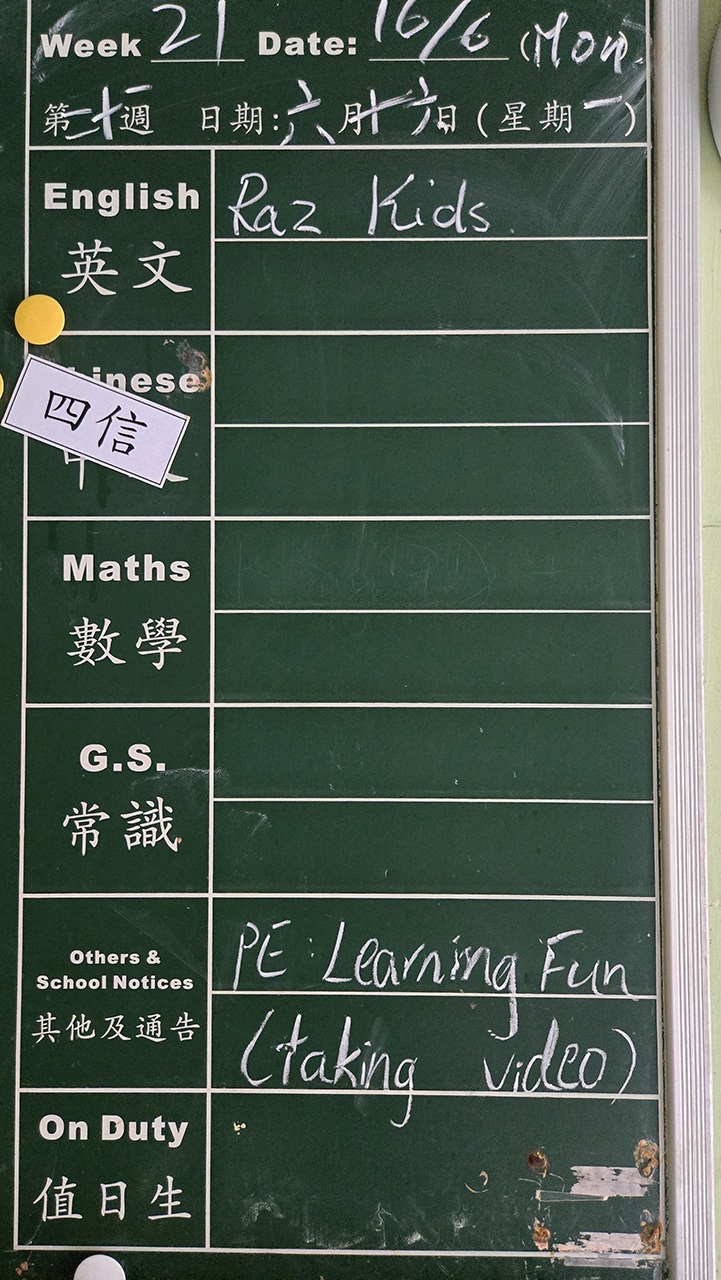 Week 21 Date: 16/6 (Mon)
第二十一週 日期:六月十六日(星期一)
English Raz Kids.
英文
Chinese
四信
Maths
數學
G.S.
常識
Others &
School Notices
其他及通告
PE: Learning Fun
(taking video)
On Duty
值日生